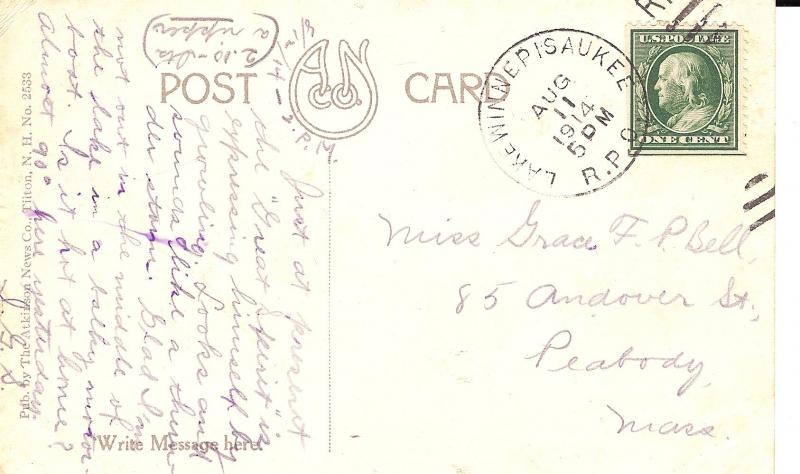 POST CARD
A.N. Co.
LAKE WINNEPISAUKEE
AUG
11
1914
5 PM
R.P.O.
U.S. POSTAGE
ONE CENT
Miss Grace F. P. Bell,
85 Andover St,
Peabody,
Mass.
8/11/14 –
Just at present
the "Great Spirit" is
expressing himself by
growling. Looks and
sounds like a thun-
der storm. Glad I'm
not out in the middle of
the lake in a motor-
boat. Is it hot at home?
Almost 90° here yesterday.
(2.10
upper)
Write Message here.
Pub. by The Atkinson News Co., Tilton, N. H. No. 2533